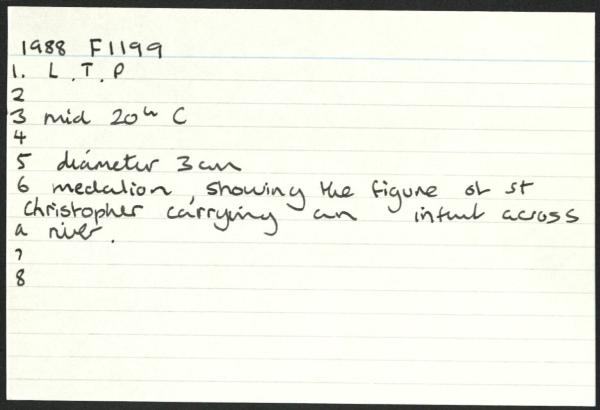 1988 F1199
1. L.T.P
2
3 mid 20th C
4
5 diameter 3cm
6 medalion, showing the figure of st
christopher carrying an infant across
a river.
7
8